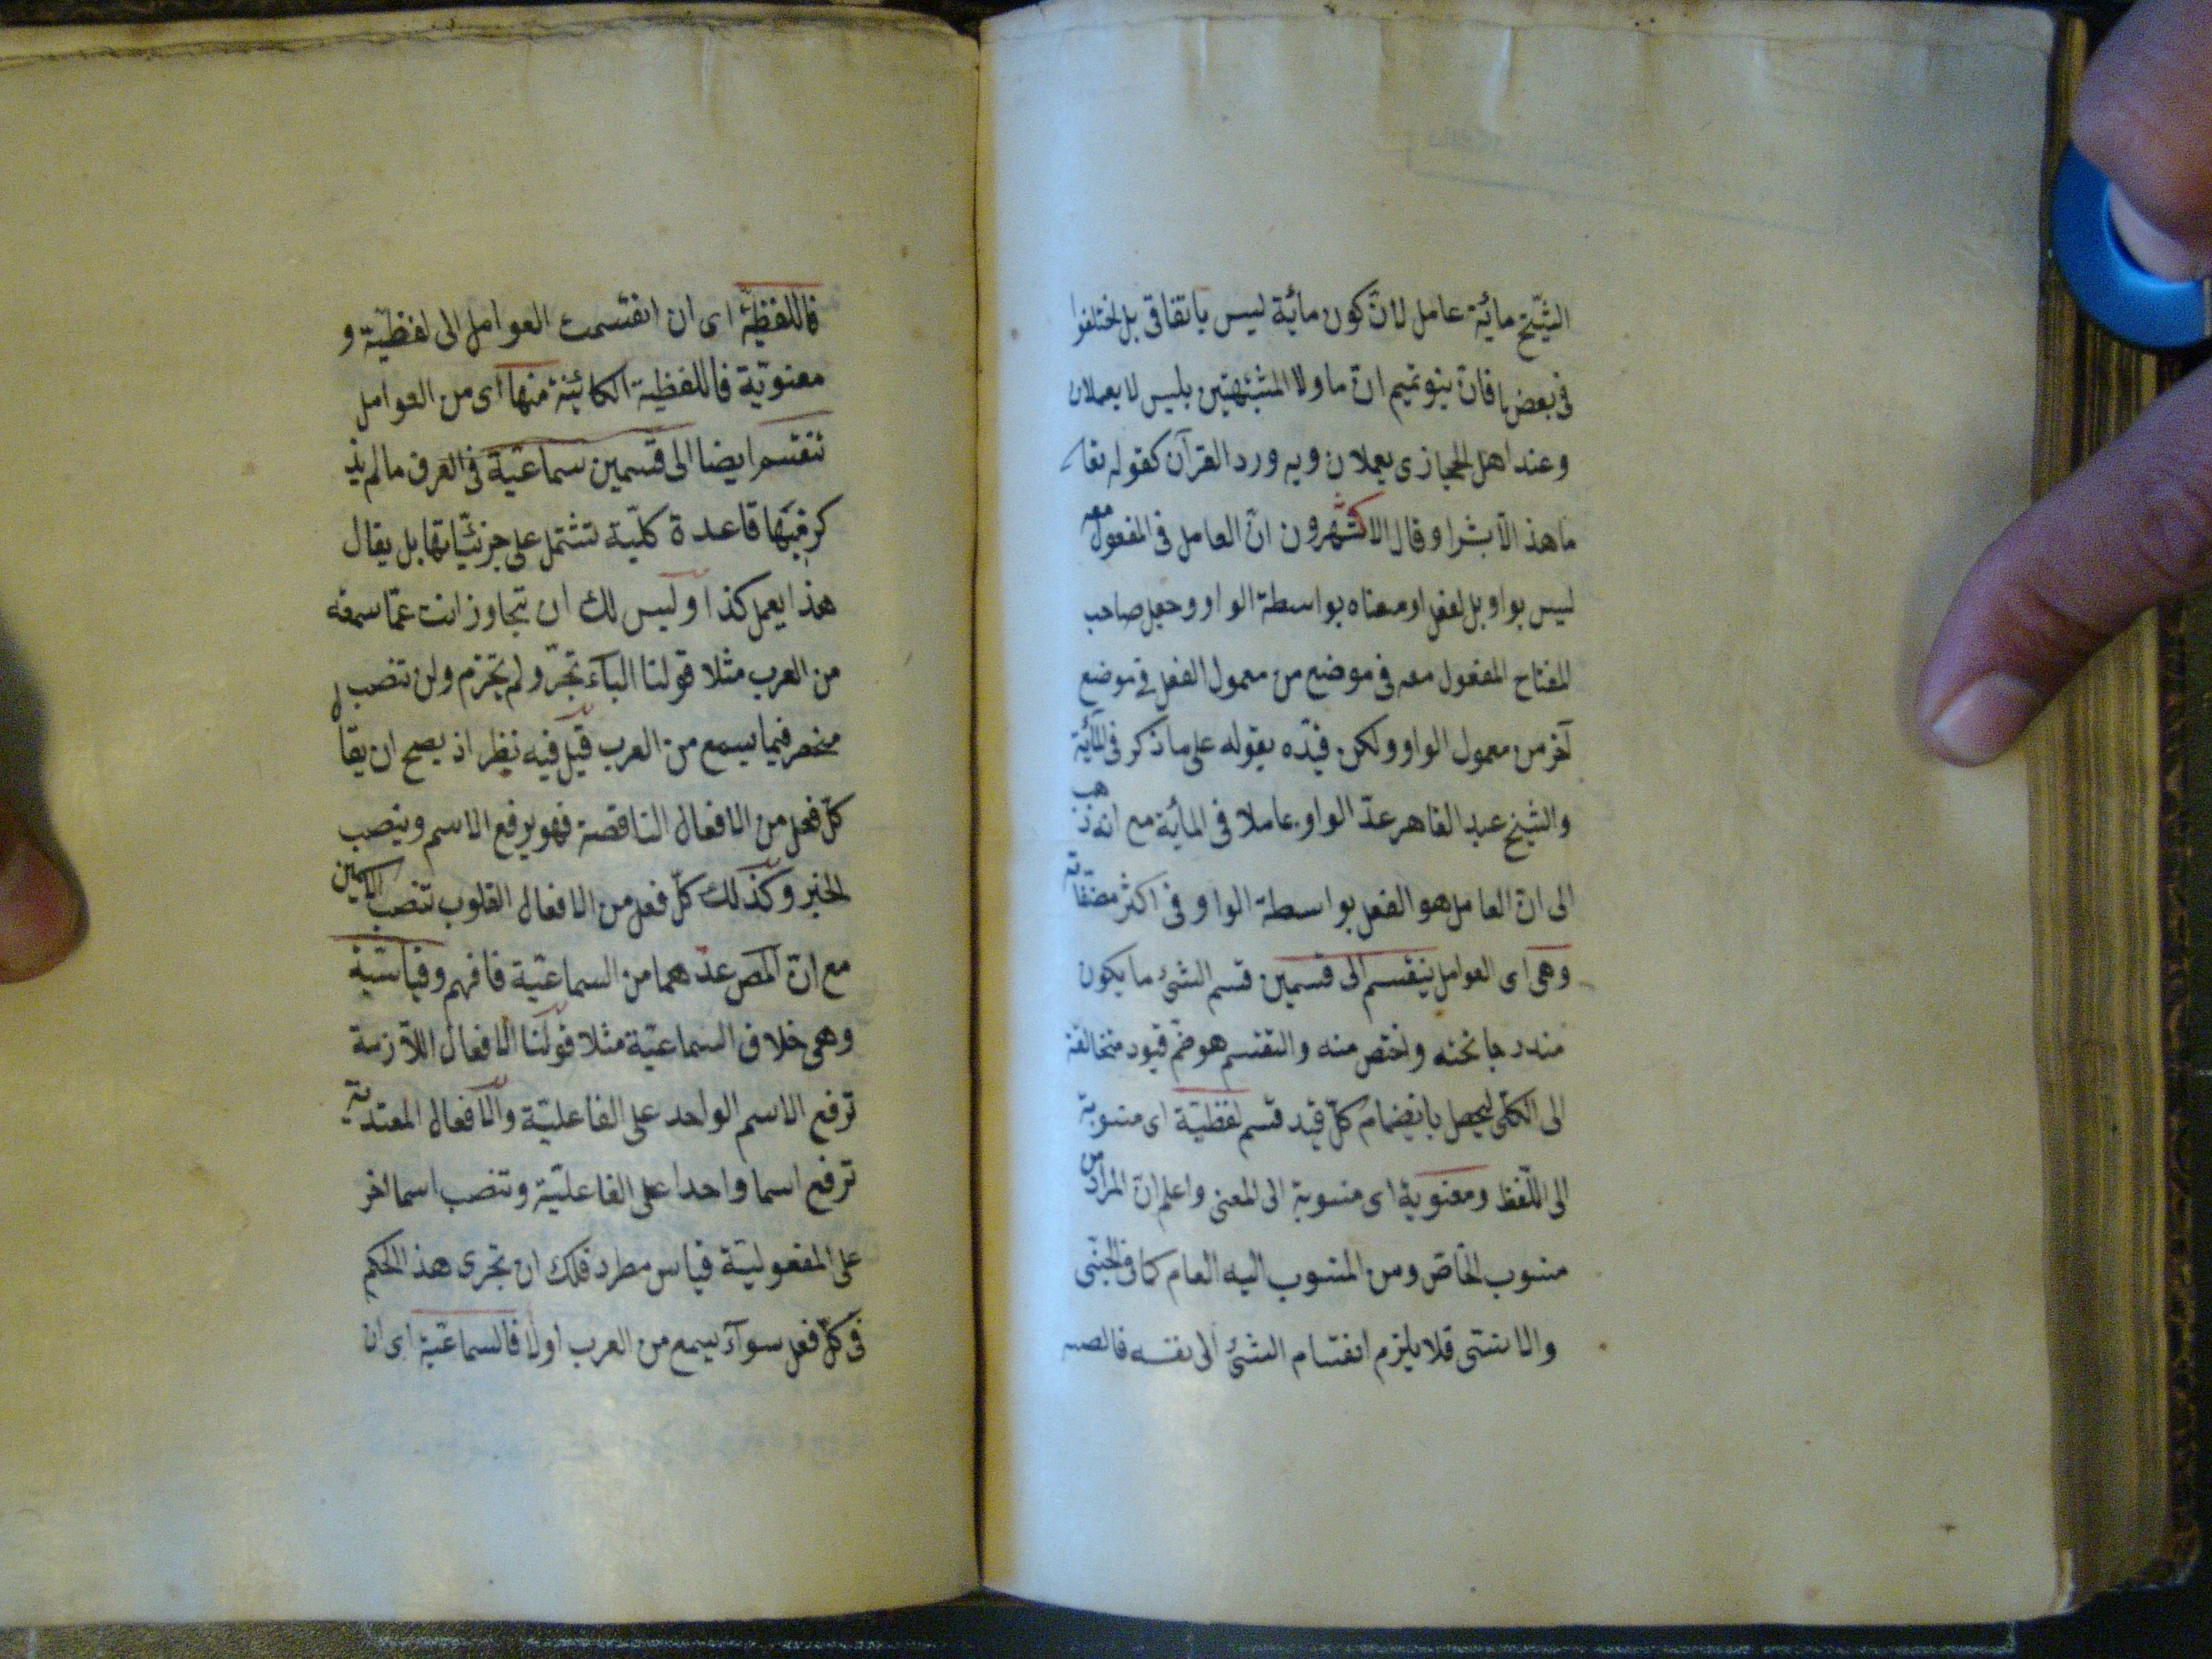 الشيخ مائة عامل لانّ كون مائة ليس باتفاقى بل اختلفوا
فى بعضها فانّ بنو تميم انّ ما ولا المشبّهتين بليس لا يعملان
وعند اهل الحجازى يعملان وبه ورد القرآن كقوله تعا
ما هذا الّا بشرا وقال الاكثرون انّ العامل فى المفعول معه
ليس بواو بل لفعل او معناه بواسطة الواو وجعل صاحب
المفتاح المفعول معه فى موضع من معمول الفعل فى موضع
آخر من معمول الواو ولكن قيّده بقوله على ما ذكر فى المأية
والشيخ عبد القاهر عدّ الواو عاملا فى المأية مع انه ذهب
الى انّ العامل هو الفعل بواسطة الواو فى اكثر مصنّفاته
وهى اى العوامل ينقسم الى قسمين قسم الشئ ما يكون
مندرجا تحته واخصّ منه والتقسيم هو ضمّ قيود متخالفة
الى الكلّى ليحصل بانضمام كلّ قيد قسم لفظيّة اى منسوبة
الى اللّفظ ومعنوية اى منسوبة الى المعنى واعلم انّ المراد من
منسوب الخاصّ ومن المنسوب اليه العام كما فى الجنّى
والانسى فلا يلزم انقسام الشئ الى نفسه
فاللفظيّة اى ان انقسمت العوامل الى لفظيّة و
معنويّة فاللفظية الكائينة منها اى من العوامل
تنقسم ايضا الى قسمين سماعيّة فى العرف ما لم يذ
كر فيها قاعدة كليّة تشتمل على جزئيّاتها بل يقال
هذا يعمل كذا وليس لك ان تتجاوز انت عمّا سمعته
من العرب مثلا قولنا الباء تجرّ ولم تجزم ولن تنصب
منحصر فيما يسمع من العرب قيل فيه نظر اذ يصح ان يقال
كلّ فعل من الافعال الناقصة فهو يرفع الاسم وينصب
الخبر وكذلك كلّ فعل من الافعال القلوب تنصب الاسمين
مع انّ المص عدّهما من السماعيّة فافهم وقياسيّة
وهى خلاف السماعيّة مثلا قولنا الافعال اللّازمة
ترفع الاسم الواحد على الفاعليّة والافعال المعتدية
ترفع اسما واحدا على الفاعليّة وتنصب اسما اخر
على المفعوليّة قياس مطرد فلك ان تجرى هذا الحكم
فى كلّ فعل سواء يسمع من العرب اولا فالسماعيّة اى ان